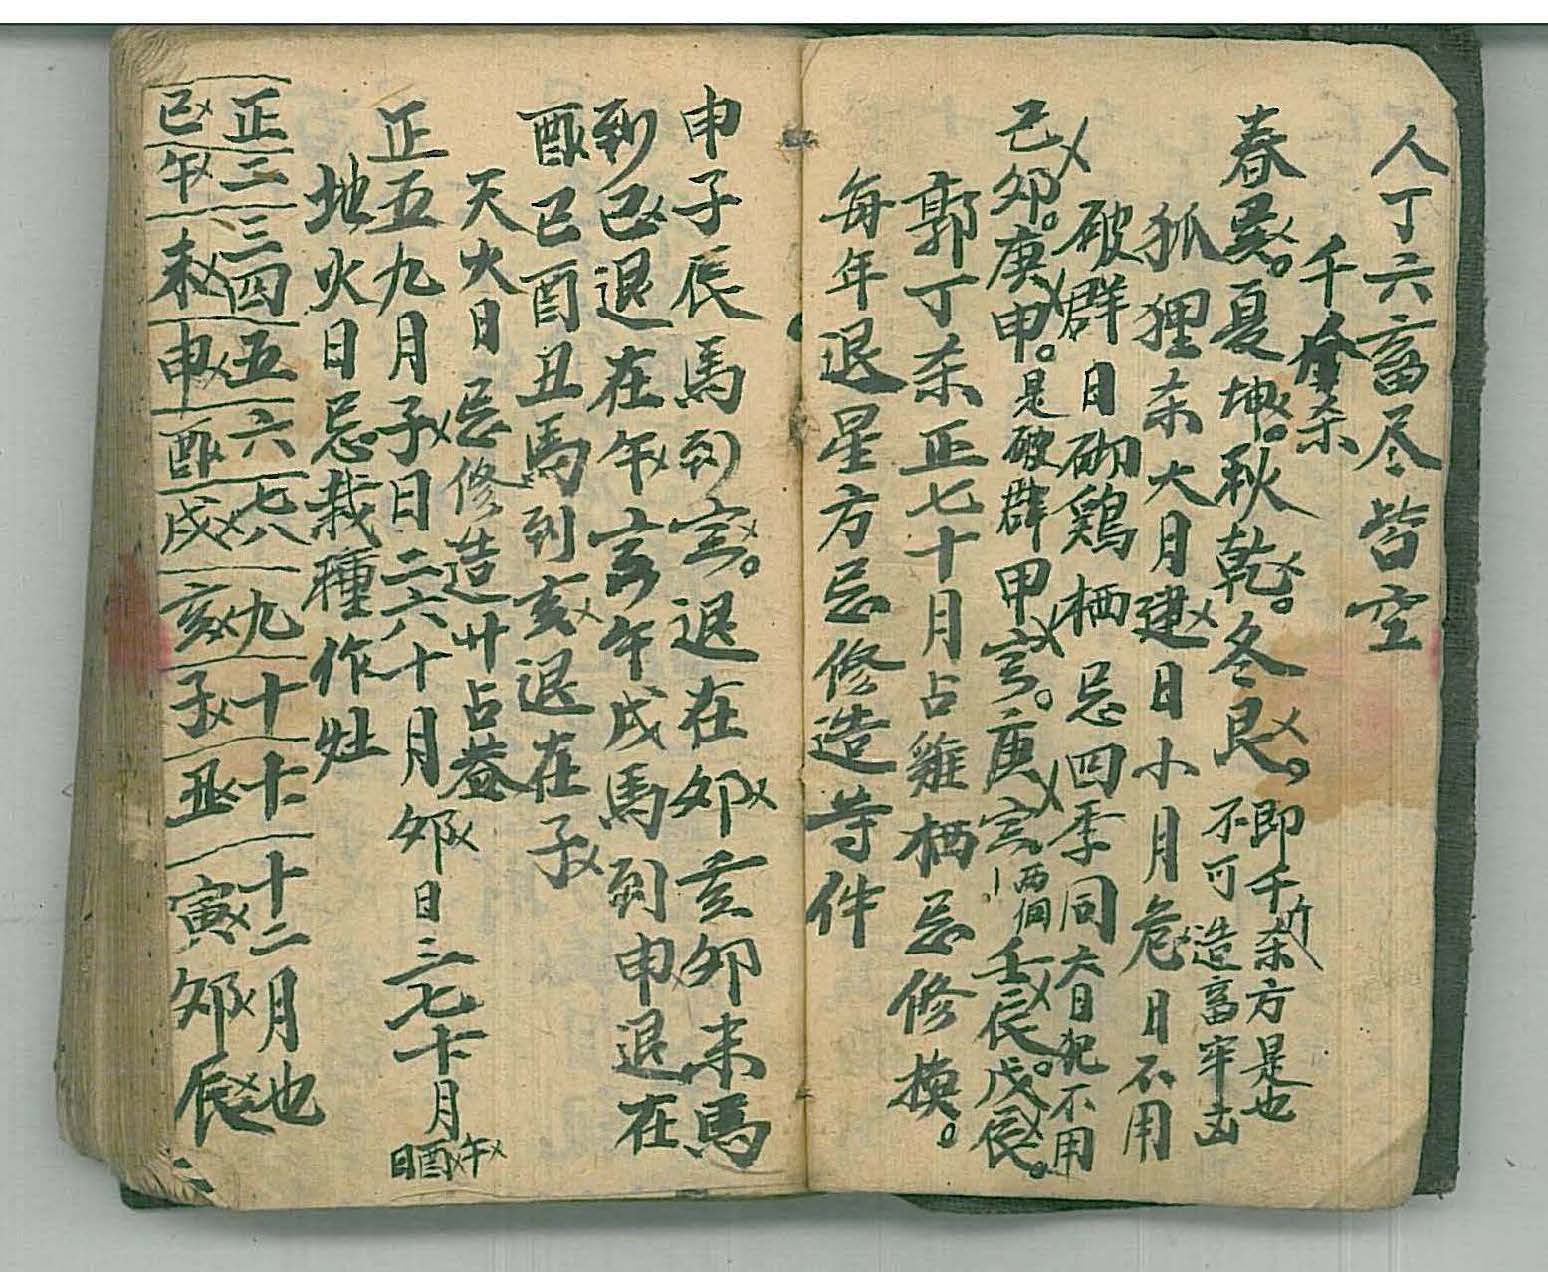 人丁六畜尽皆空
千金杀
春巽。夏坤。秋乾。冬艮。即千斤杀方是也
不可造畜牢凶
狐狸杀大月建日小月危日不用
破群日砌鷄栖忌四季同大日犯不用
己卯。庚申。是破群甲寅。庚寅两個壬辰。戊辰。
郭丁杀正七十月占雞栖忌修模。
每年退星方忌修造等件
申子辰馬到寅。退在卯亥卯未馬
到巳退在午寅午戌馬到申退在
酉巳酉丑馬到亥退在子
天火日忌修造廾占蓋
正五九月子日二六十月卯日三七十一月午酉日
地火日忌栽種作灶
正二三四五六七八九十十一十二月也
巳午未申酉戌亥子丑寅卯辰